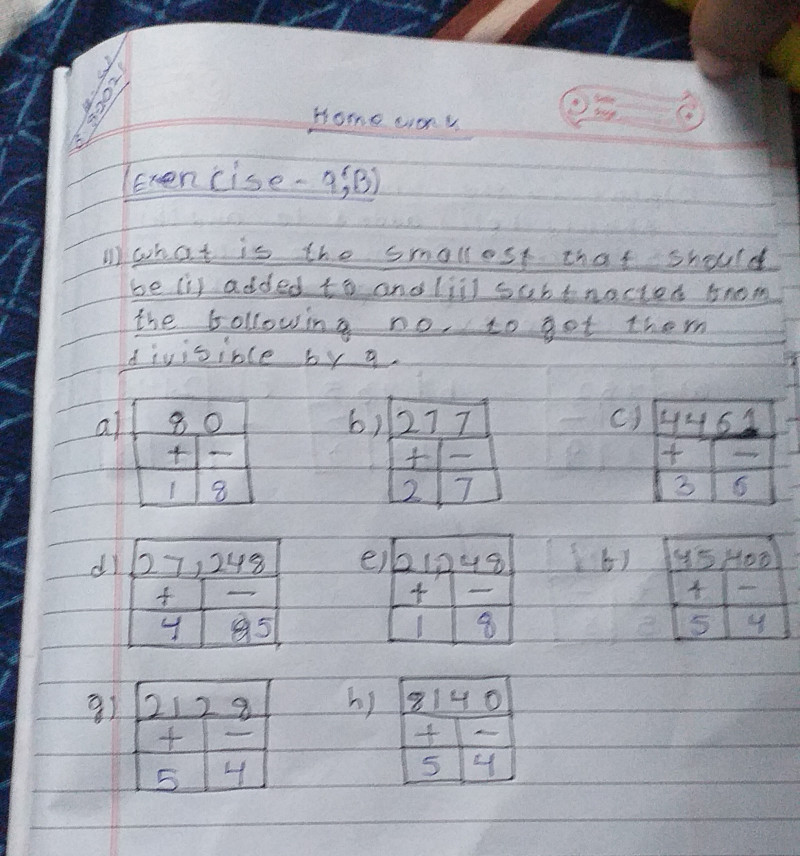 Home work
Exercise - 9(B)
11) What is the smallest that should
be (i) added to and (ii) subtracted from
the following no. to get them
divisible by 9.
a) 80 b) 277 c) 4461
+ - + - + -
1 8 2 7 3 6
d) 27,248 e) 21,248 f) 45,400
+ - + - + -
4 5 1 8 5 4
g) 2128 h) 8140
+ - + -
5 4 5 4